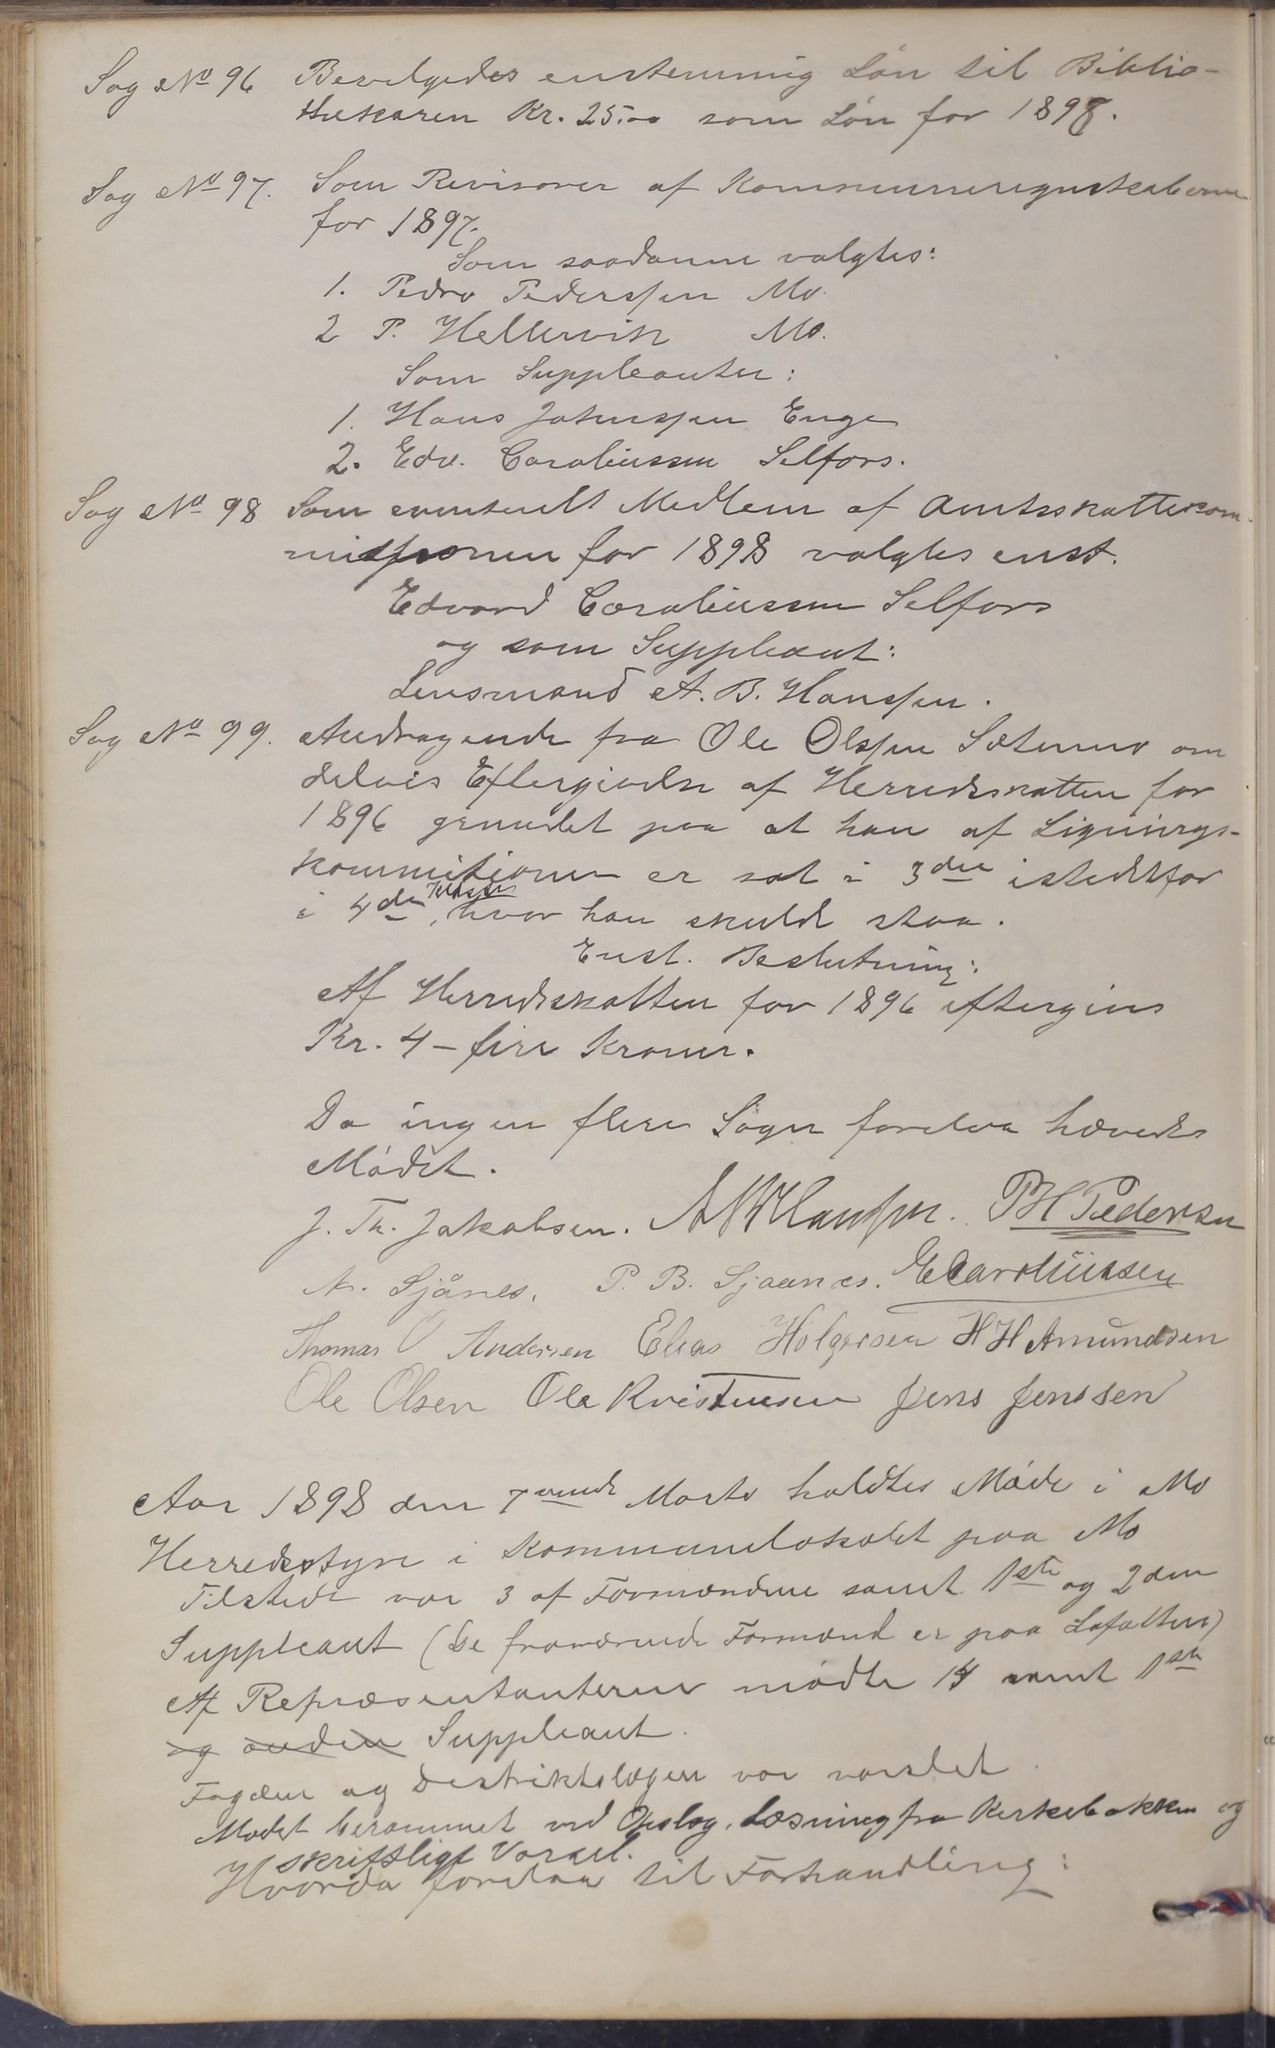 Sag No 96 Bevilgedes enstemmig Løn til Biblio-
thekaren Kr. 25.00 som Løn for 1898.
Sag No 97. Som Revisorer af Kommuneregnskaberne
for 1897.
Som saadanne valgtes:
1. Pedro Pederssen Mo.
2 P. Hellervik Mo.
Som Suppleanter:
1. Hans Johnssen Enge
2. Edv. Coroliussen Selfors.
Sag No 98 Som eventuelt Medlem af Amtsskattekom-
missionen for 1898 valgtes enst.
Edvard Coroliussen Selfors
og som Suppleant:
Lensmand A. B. Hanssen.
Sag No 99. Andragende fra Ole Olssen Sætermo om
delvis Eftergivelse af Herredsskatten for
1896 grundet paa at han af Lignings-
kommitionen er sat i 3die istedetfor
i 4de Klasse, hvor han skulde staa.
Enst. Beslutning:
Af Herredsskatten for 1896 eftergives
Kr. 4 – fire Kroner.
Da ingen flere Sager forelaa hævedes
Mødet.
J. Th. Jakobsen. A B Hanssen. P H Pedersen
N. Sjånes. P. B. Sjaanes. E Caroliussen
Thomas O Andersen Elias Holgersen H H Amundsen
Ole Olsen Ole Kristensen Jens Jenssen
Aar 1898 den 7vende Marts holdtes Møde i Mo
Herredsstyre i Kommunelokalet paa Mo
Tilstede var 3 af Formændene samt 1ste og 2den
Suppleant (De fraværende Formænd er paa Lofoten)
Af Repræsentanterne mødte 14 samt 1ste
og anden Suppleant.
Fogden og Distriktslægen var varslet.
Mødet berammet ved Opslag, Læsning fra Kirkebakken og
skriftligt Varsel.
Hvorda forelaa til Forhandling: